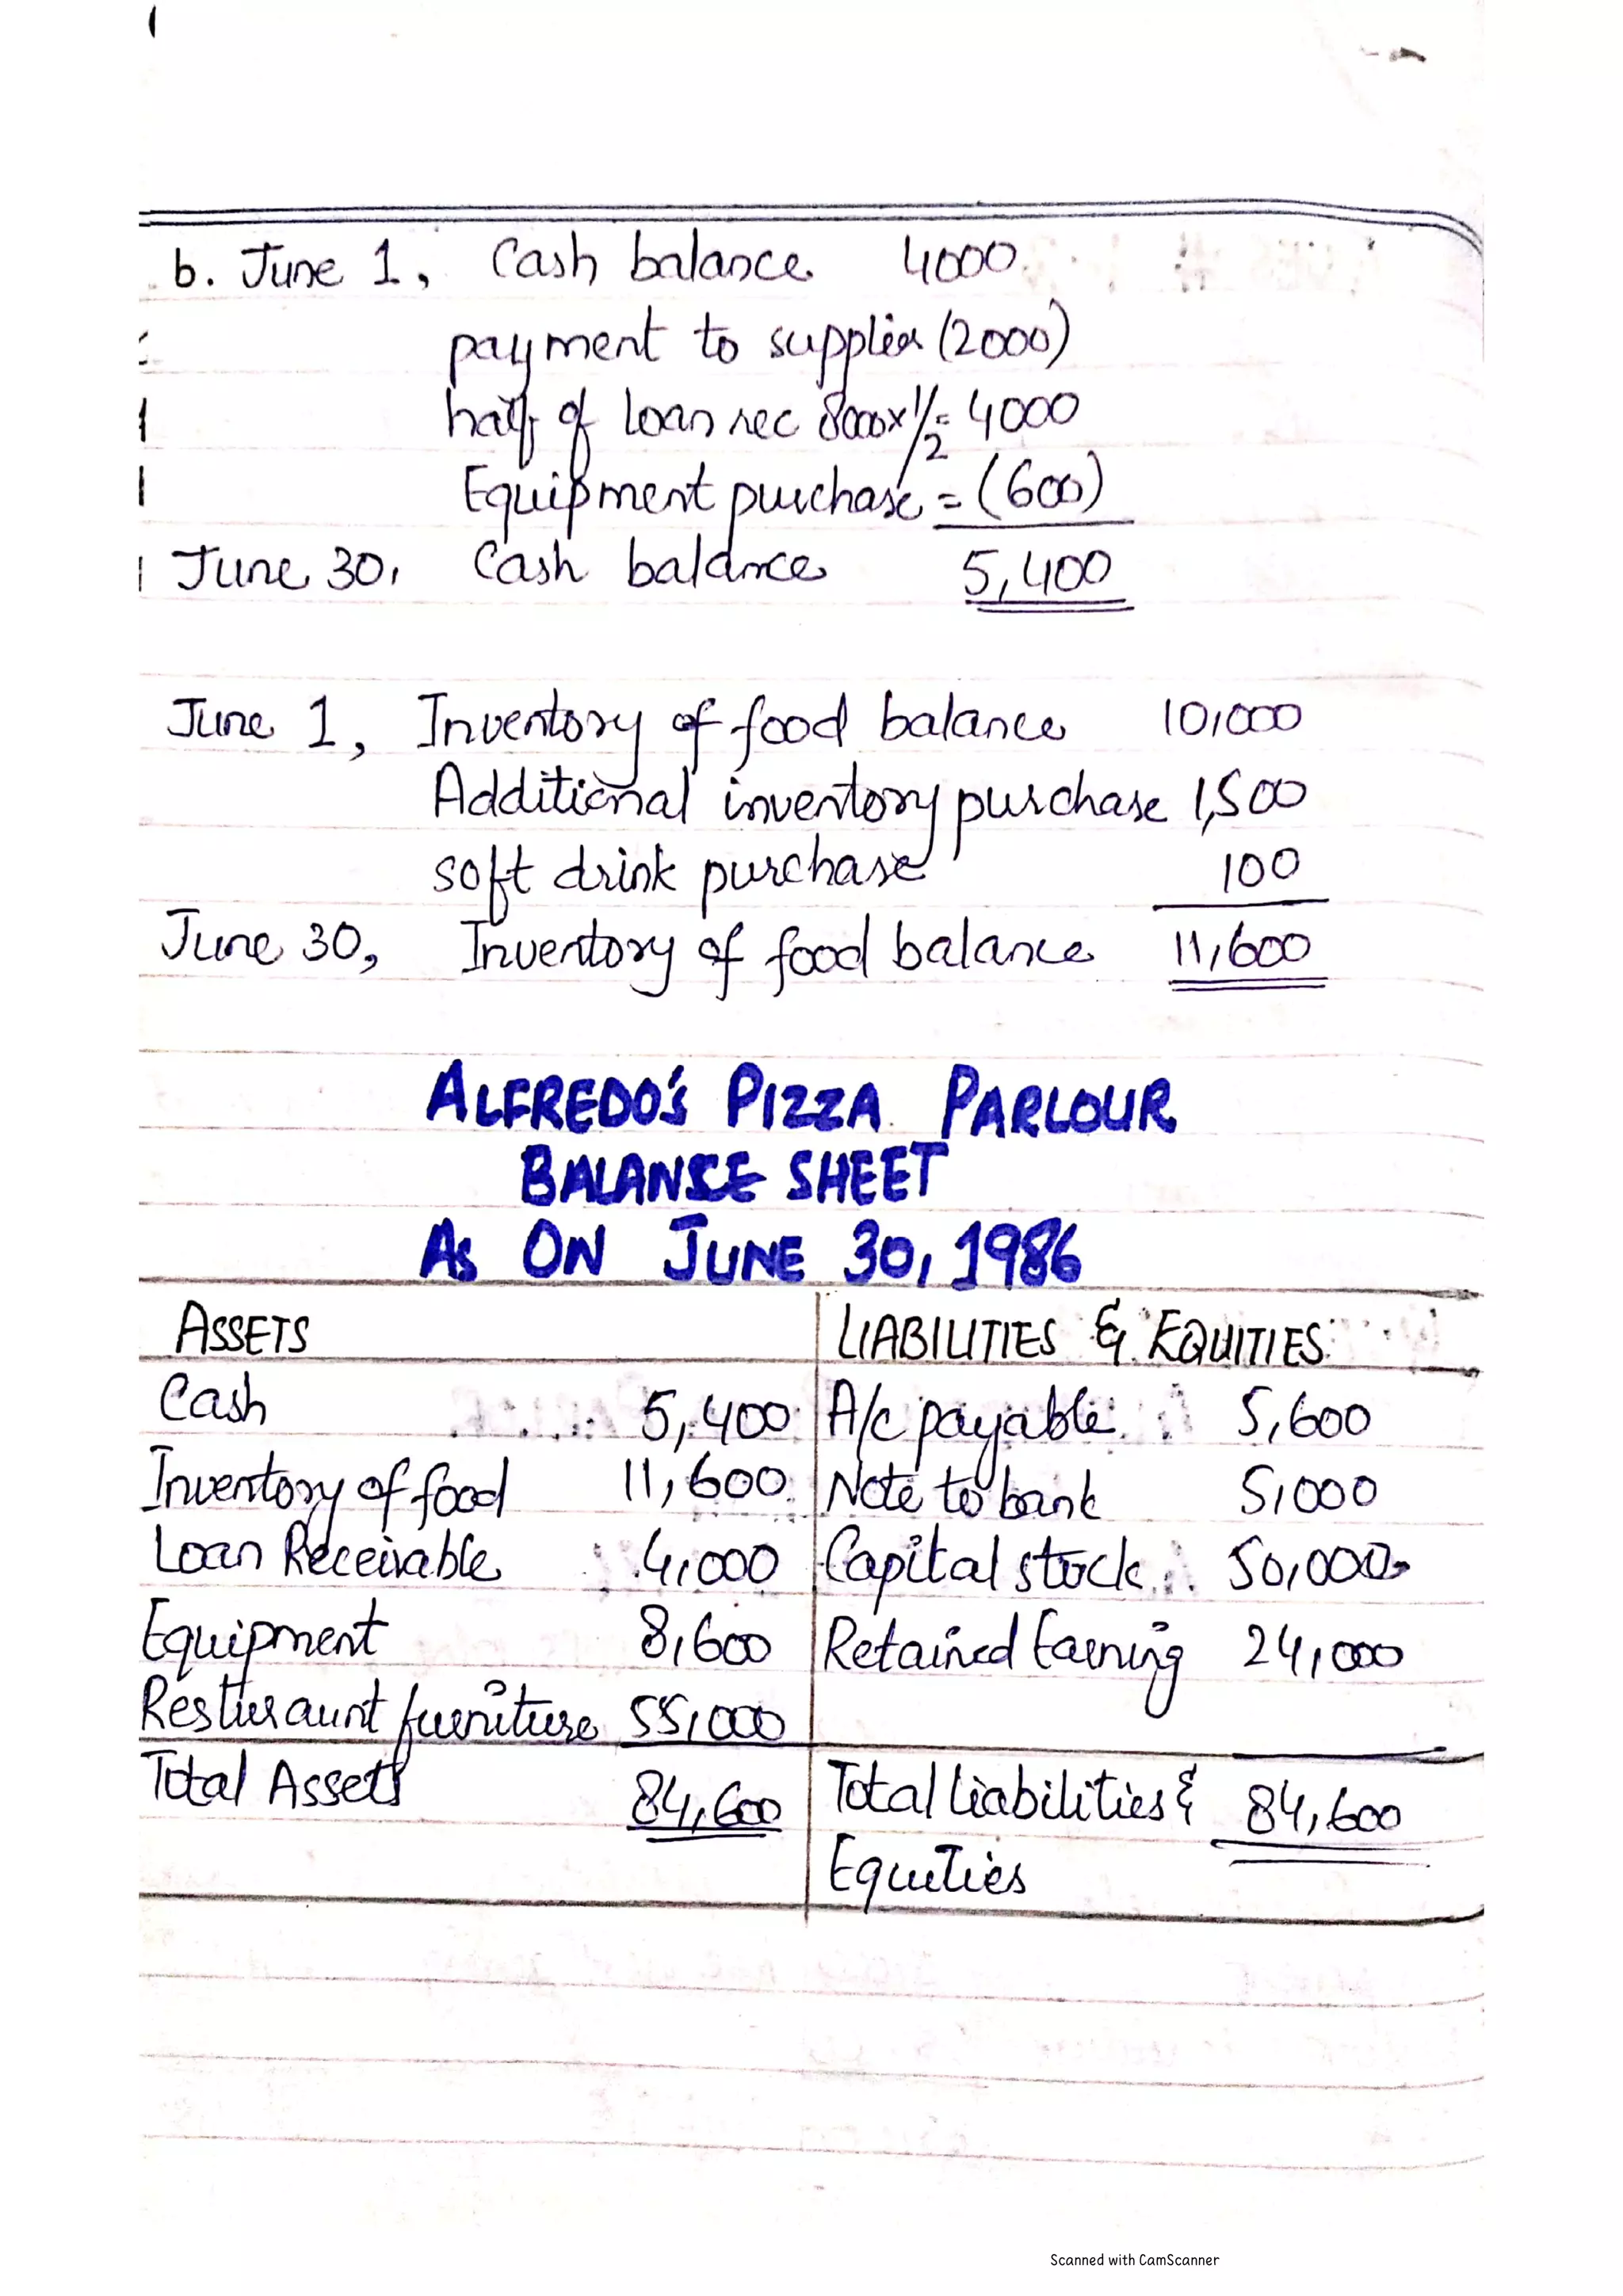 b. June 1, Cash balance 4000
payment to supplier (2000)
half of loan rec 8000x1/2= 4000
Equipment purchase = (600)
June 30, Cash balance 5,400
June 1, Inventory of food balance 10,000
Additional inventory purchase 1,500
soft drink purchase 100
June 30, Inventory of food balance 11,600
ALFREDO'S PIZZA PARLOUR
BALANCE SHEET
AS ON JUNE 30, 1986
ASSETS LIABILITIES & EQUITIES
Cash 5,400 A/c payable 5,600
Inventory of food 11,600 Note to bank 5,000
Loan Receivable 4,000 Capital stock 50,000
Equipment 8,600 Retained Earning 24,000
Resturaunt furniture 55,000
Total Assets 84,600 Total liabilities & 84,600
Equities
Scanned with CamScanner